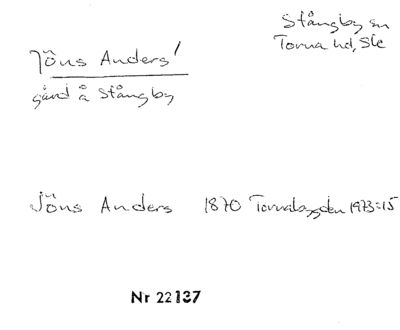 Stångby sn
Torna hd, Ske
Jöns Anders'
gård å Stångby
Jöns Anders 1870 Tornabygden 1973:15
Nr 22137